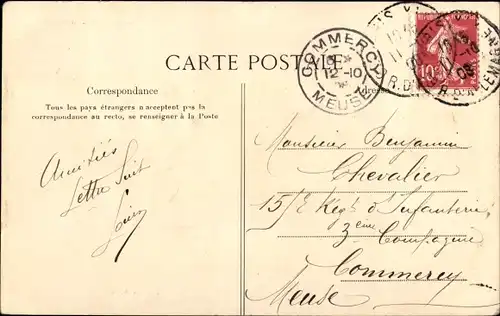 CARTE POSTALE
Correspondance
Tous les pays étrangers n'acceptent pas la
correspondance au recto, se renseigner à la Poste
COMMERCY
12-10
MEUSE
10
Amitiés
Lettre suit
Monsieur Benjamin
Chevalier
15/E Regt d'Infanterie
3ème Compagnie
Commercy
Meuse